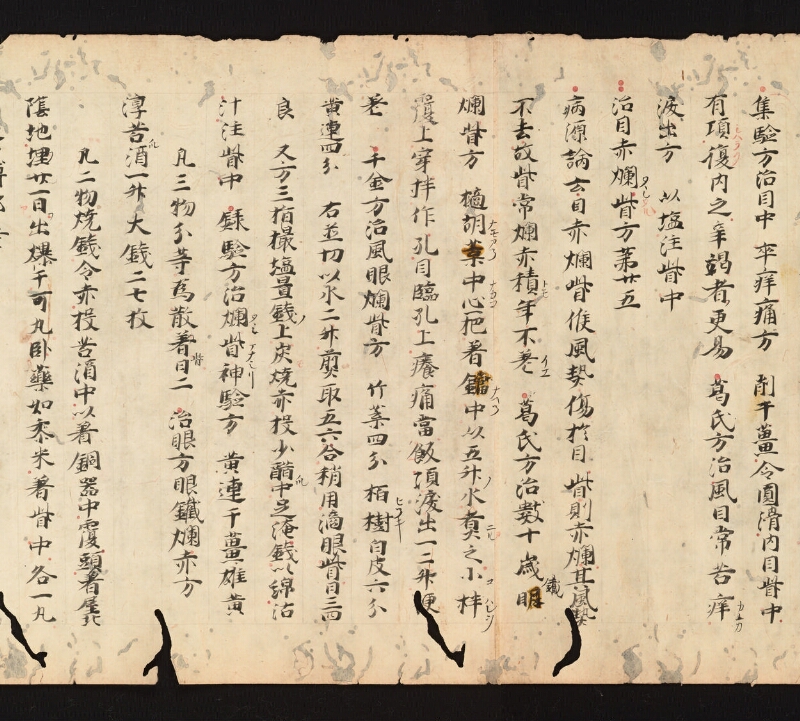 集驗方治目中卒痒痛方 削干薑令圓滑内目眥中
有頃復内之辛竭者更易 葛氏方治風目常苦痒
淚出方 以塩注眥中
治目赤爛眥方第廿五
病源論云目赤爛眥候風熱傷於目眥則赤爛其風熱
不去故眥常爛赤積年不差 葛氏方治數十歲眼
爛眥方 胡葉中心一把着鐺中以五升水煮之小柈
覆上穿柈作孔目臨孔上癢痛當飯頃淚出一二升便
差 千金方治風眼爛眥方 竹葉四分 栢樹白皮六分
黄連四分 右並切以水二升煎取五六合稍用滴眼眥日三四
良 又方三指撮塩置錢上炭燒赤投少醋中足淹錢以綿沾
汁注眥中 錄驗方治爛眥神驗方 黄連干薑雄黄
凡三物分等為散着眥日二 治眼方眼爛赤方
淳苦酒一升大錢二七枚
凡二物燒錢令赤投苦酒中以着銅器中覆頭着屋北
陰地埋廿一日出爆干可丸卧藥如黍米着眥中各一丸